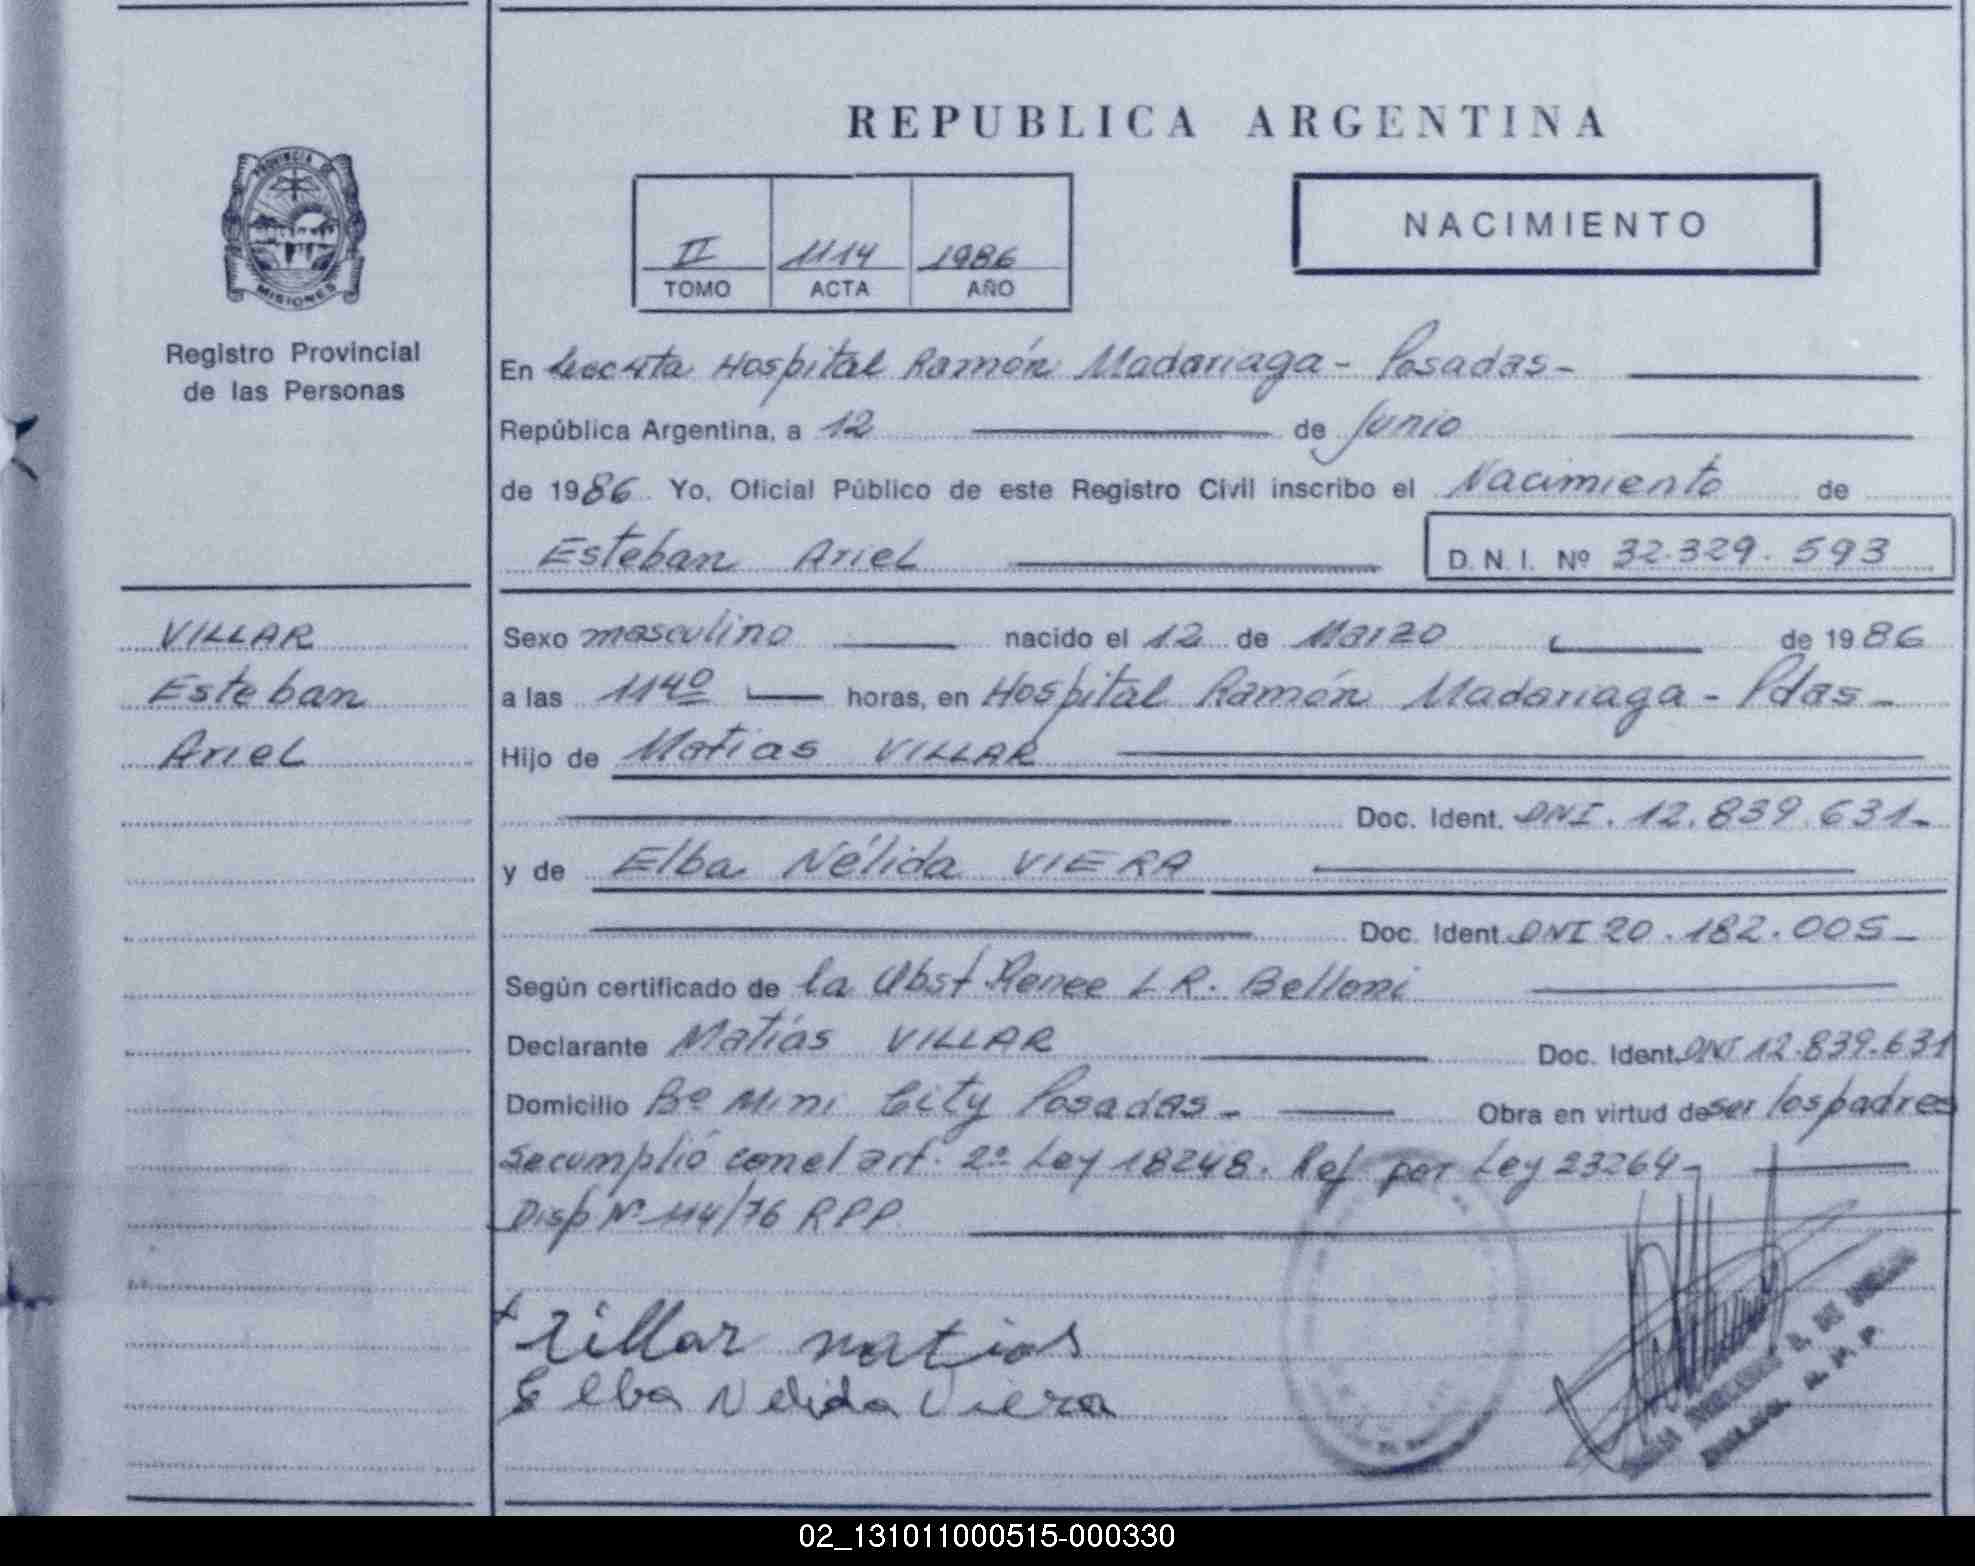 REPUBLICA ARGENTINA
PROVINCIA DE
MISIONES
Registro Provincial
de las Personas
NACIMIENTO
II 1114 1986
TOMO ACTA AÑO
En Hospital Ramón Madariaga - Posadas -
República Argentina, a 12 de Junio
de 1986 Yo, Oficial Público de este Registro Civil inscribo el Nacimiento de
Esteban Ariel D. N. I. Nº 32.329.593
VILLAR
Esteban
Ariel
Sexo masculino nacido el 12 de Marzo de 1986
a las 1140 horas, en Hospital Ramón Madariaga - Pdas -
Hijo de Matias VILLAR
Doc. Ident. DNI. 12.839.631-
y de Elba Nélida VIERA
Doc. Ident. DNI 20.182.005-
Según certificado de la Obst. Renee L R. Belloni
Declarante Matías VILLAR Doc. Ident. DNI 12.839.631
Domicilio Bº Mini City Posadas - Obra en virtud de ser los padres
Se cumplió con el art. 2º Ley 18248. Ref por Ley 23264-
Disp Nº 114/76 RPP
Villar matias
Elba Nelida Viera
02_131011000515-000330